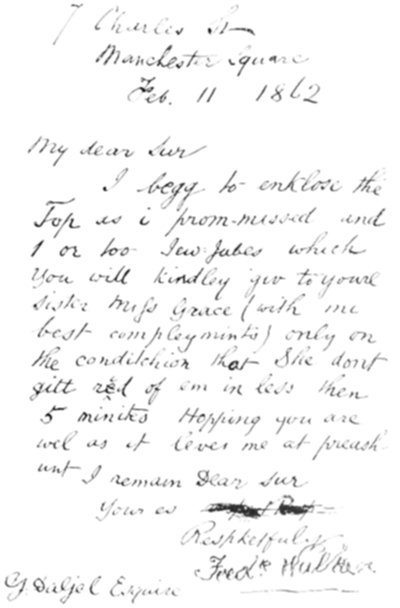 7 Charles St
Manchester Square
Feb. 11 1862
My dear Sur
I begg to enklose the
Top as i prom-missed and
1 or too Jew-Jubes which
you will kindley giv to youre
sister Miss Grace (with mi
best compleymints) only on
the conditchion that She dont
gitt red of em in less then
5 minites Hopping you are
wel as it leves me at preash-
unt I remain Dear Sur
Your es
Respketfuly
Fredk Walker.
G. Daljel Esquire